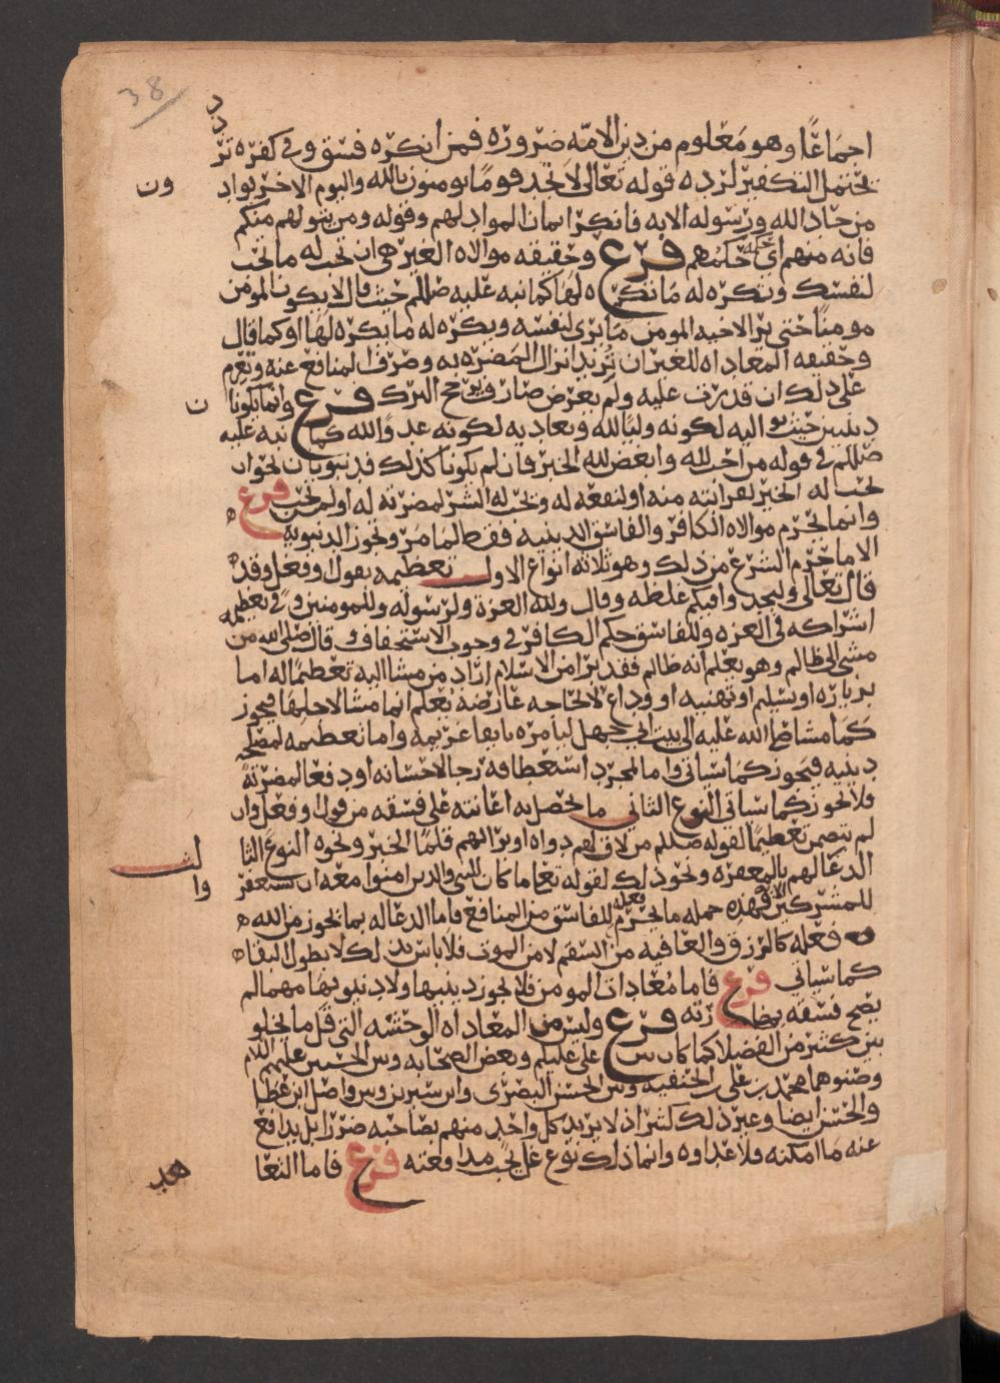 38
اجماعًا وهو معلوم من دين الامّه ضروره فمن انكره فسق وفي كفره تردد
يحتمل التكفير لرده قوله تعالى لا تجد قومًا يومنون بالله واليوم الاخر يوادون
من حاد الله ورسوله الايه فانكر ايمان المواد لهم وقوله ومن يتولهم منكم
فانه منهم اي حكمه حكمهم فرع وحقيقه موالاه الغير هي ان تحب له ما تحب
لنفسك وتكره له ما تكره لها كما نبه عليه صللم حيث قال لا يكون المومن
مومنًا حتى يرا لاخيه المومن ما يرى لنفسه ويكره له ما يكره لها او كما قال
وحقيقه المعاداه للغير ان تريد انزال المضره به وصرف المنافع عنه وتعزم
على ذلك ان قدرت عليه ولم يعرض صارف يرجح الترك فرع وانما يكونان
دينيين حيث يواليه لكونه وليًا لله ويعاديه لكونه عدوًا لله كما نبه عليه
صللم في قوله من احب لله وابغض لله الخبر فان لم يكونا كذلك فدنيويان نحو ان
تحب له الخير لقرابته منه او لنفعه له وتحب له الشر لمضرته له او لمن يحب فرع
وانما يحرم موالاه الكافر والفاسق الدينيه فقط لما مر وتجوز الدنيويه
الا ما حرم الشرع من ذلك وهو ثلاثه انواع الاول تعظيمه بقول او فعل وقد
قال تعالى وليجدوا فيكم غلظه وقال ولله العزة ولرسوله وللمومنين وفي تعظيمه
اشراكه في العزه وللفاسق حكم الكافر في وجوب الاستخفاف وقال صلى الله من
مشى الى ظالم وهو يعلم انه ظالم فقد برا من الاسلام اراد من مشا اليه تعظيمًا له اما
بزياره او تسليم او تهنيه او وداع لا لحاجه عارضه يعلم انما مشا لاجلها فيجوز
كما مشا صلى الله عليه الى بيت ابي جهل ليامره بايفا غريمه واما تعظيمه لمصلحه
دينيه فيجوز كما سياتي واما لمجرد استعطافه رجا لاحسانه او دفعًا لمضرته
فلا تجوز كما سياتي النوع الثاني ما يحصل به اعانته على فسقه من قول او فعل وان
لم يتضمن تعظيمًا لقوله صللم من لاق لهم دواه او برا لهم قلمًا الخبر ونحوه النوع الثالث
الدعا لهم بالمغفره ونحو ذلك لقوله تعا ما كان للنبي والذين امنوا معه ان يستغفروا
للمشركين الايه فهذه جمله ما يحرم فعله للفاسق من المنافع فاما الدعا له بما يجوز من الله
فعله كالرزق والعافيه من السقم لا من الموت فلا باس بذلك لا بطول البقا
كما سياتي فرع فاما معادات المومن فلا يجوز دينيها ولا دنيويها مهما لم
يصح فسقه فرع وليس من المعاداه الوحشه التي قل ما يخلو
بين كثير من الفضلا كما كان بين علي عليلم وبعض الصحابه وبين الحسين عليهم اللام
وصنوهما محمد بن علي بن الحنفيه وبين الحسن البصري وابن سيرين وبين واصل ابن عطا
والحسن ايضا وغير ذلك كثير اذ لا يريد كل واحد منهم بصاحبه ضررا بل يدافع
عنه ما امكنه فلا عداوه وانما ذلك نوع غل يجب مدافعته فرع فاما التعا
هد